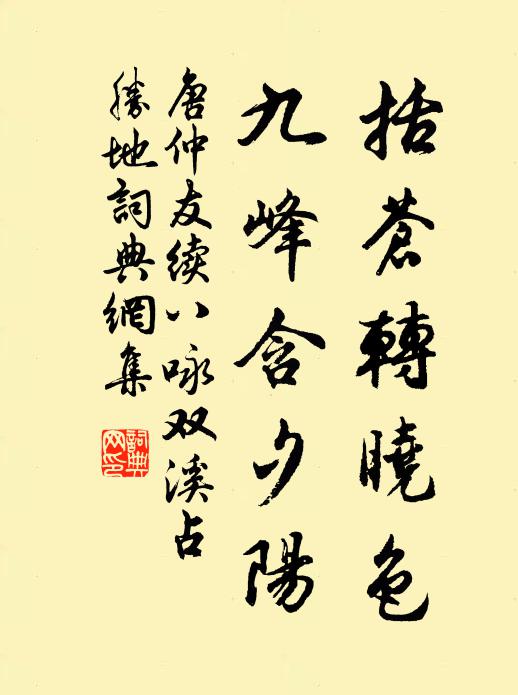 括蒼轉曉色
九峰含夕陽
唐仲友续八咏双溪占
勝地詞典網集
詞典
网印